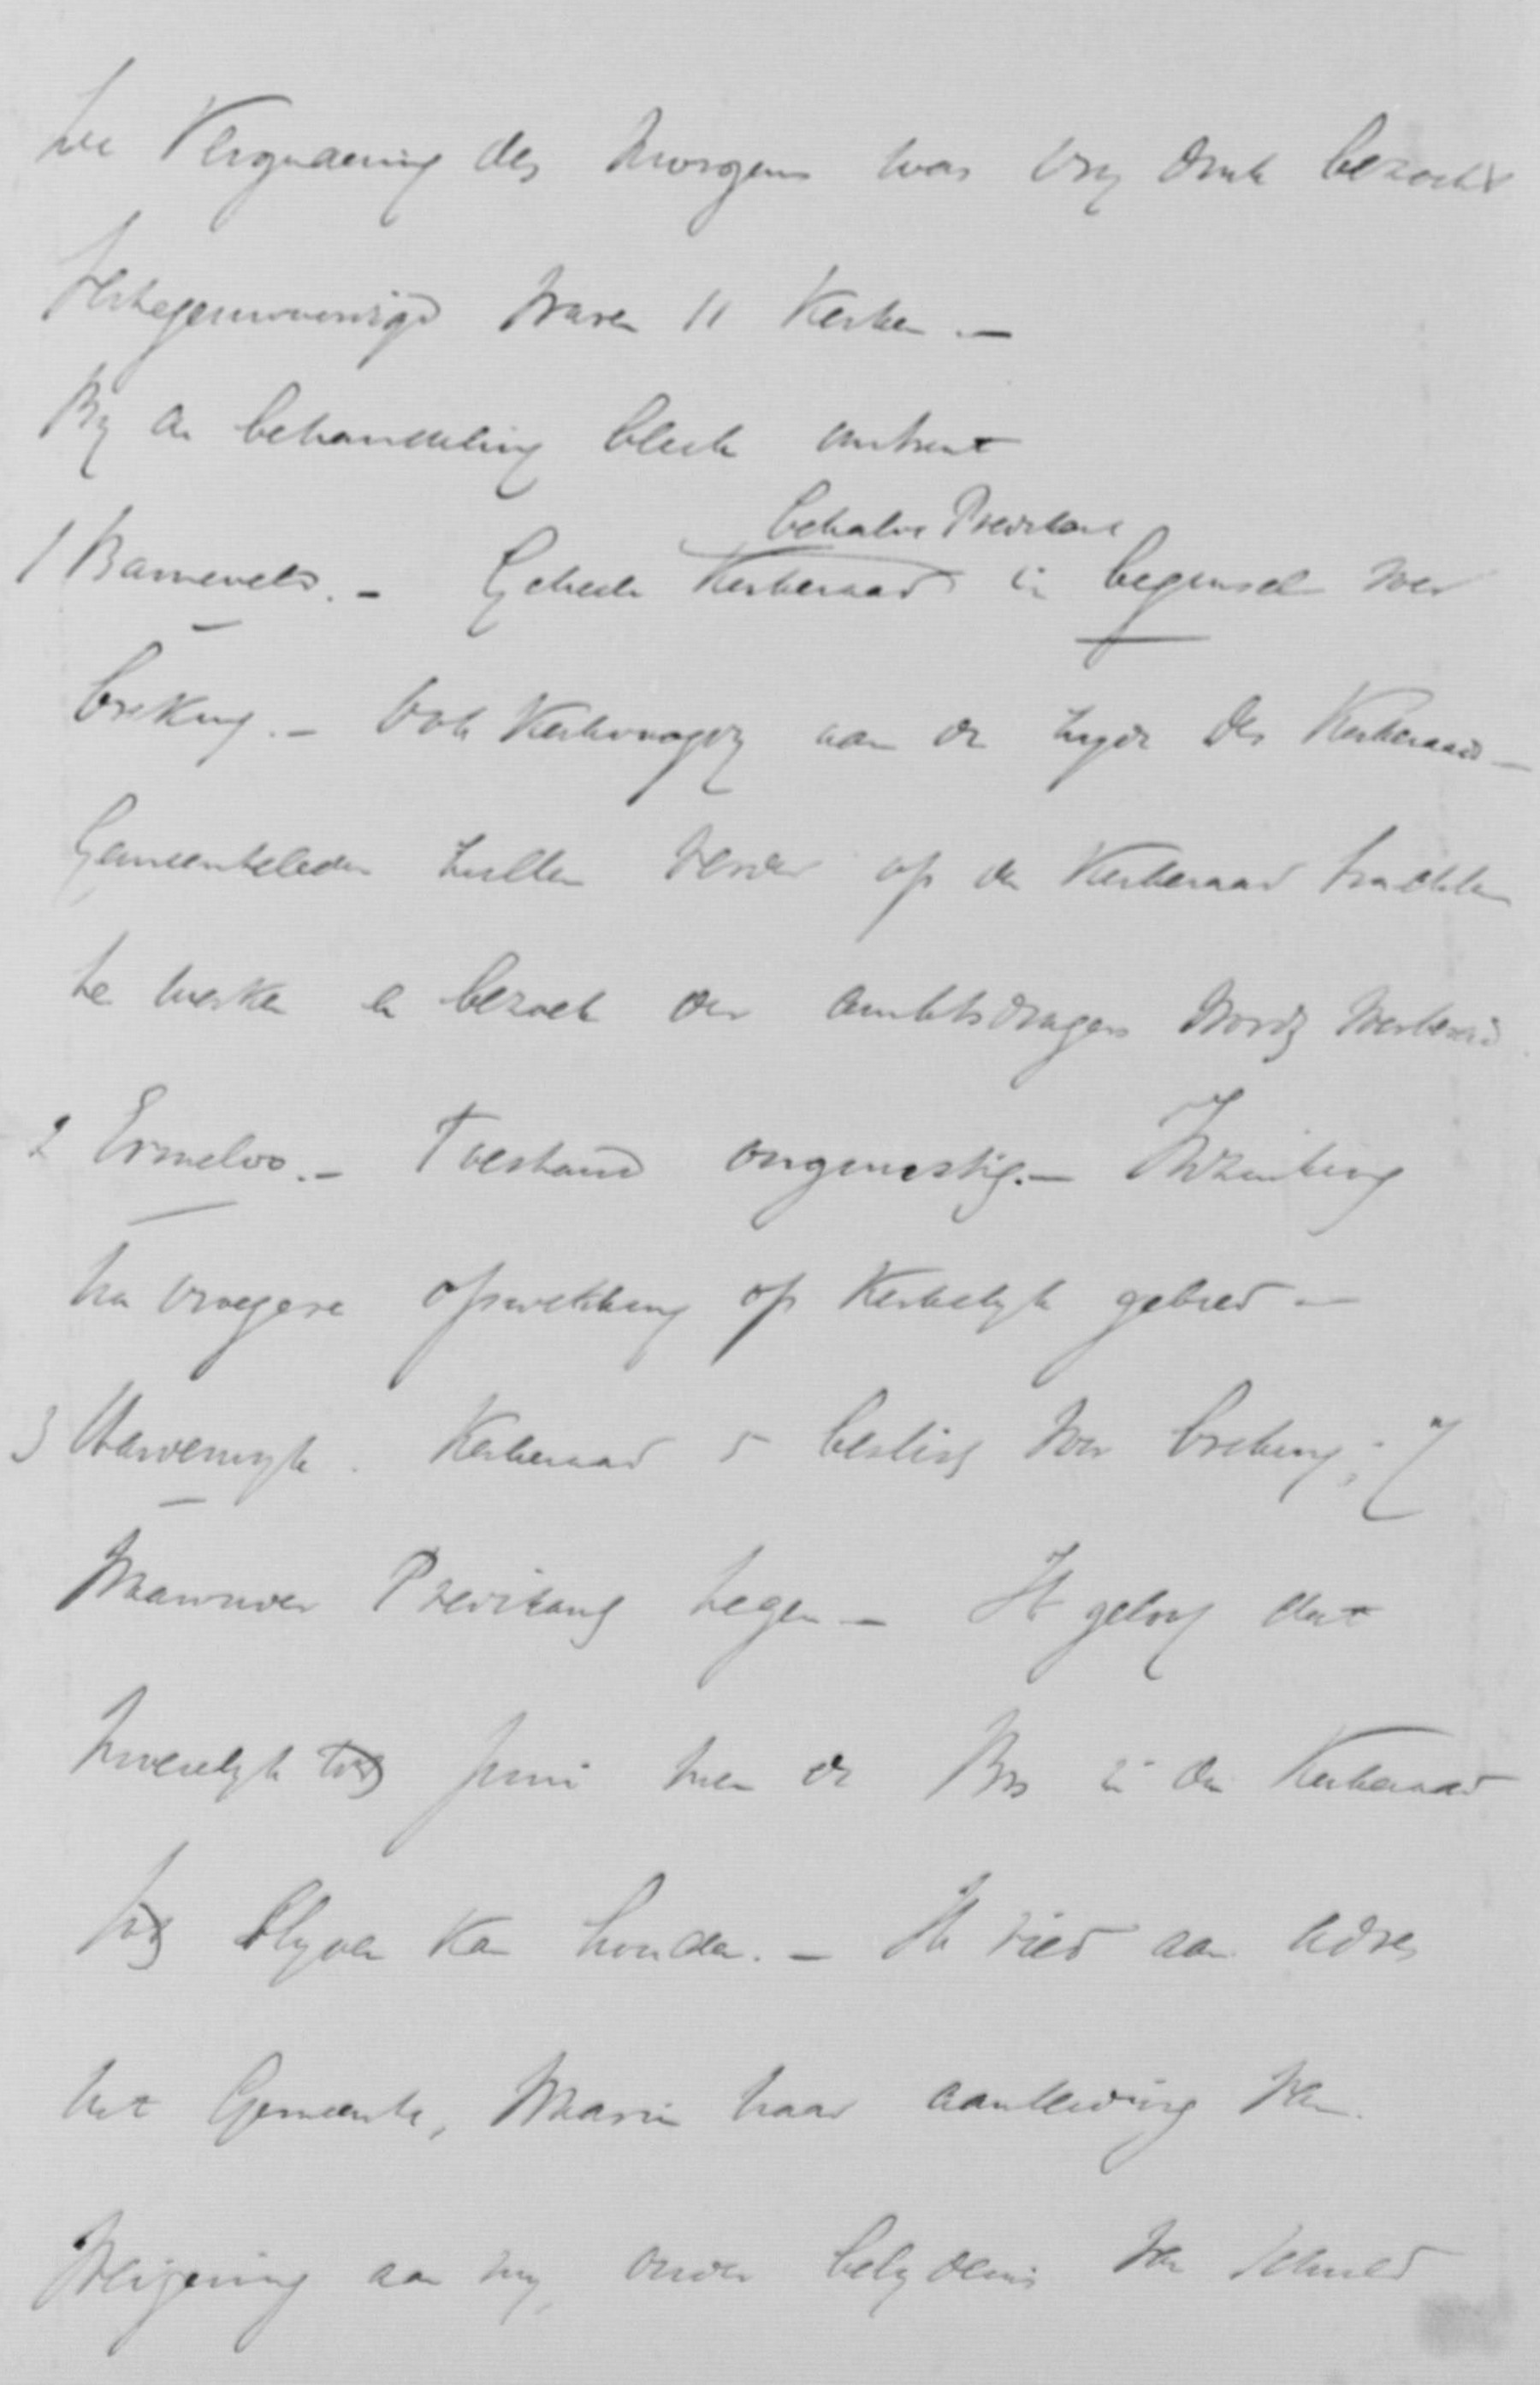 De Vergadering des morgens was vrij druk bezocht
Vertegenwoordigd waren 11 Kerken. —
Bij de behandeling bleek omtrent
behalve Predikant
1 Barneveld. – Geheele Kerkeraad in beginsel voor
breking. – Ook Kerkvoogdij aan de zijde des Kerkeraads —
Gemeenteleden zullen verder op den Kerkeraad trachten
te werken en bezoek der ambtsdragers wordt voorbereid
2 Ermeloo. – Toestand ongunstig. — Inzinking
na vroegere opwekking op Kerkelijk gebied —
3 Harderwijk. Kerkeraad 5 beslist voor breking; 7
waaronder Predikant tegen — Ik geloof dat
moeielijk tot Juni men de Bos in den Kerkeraad
blijven kan houden. – Ik ried aan adres
uit Gemeente, waarin naar aanleiding van
weigering aan hij, onder belijdenis van schuld